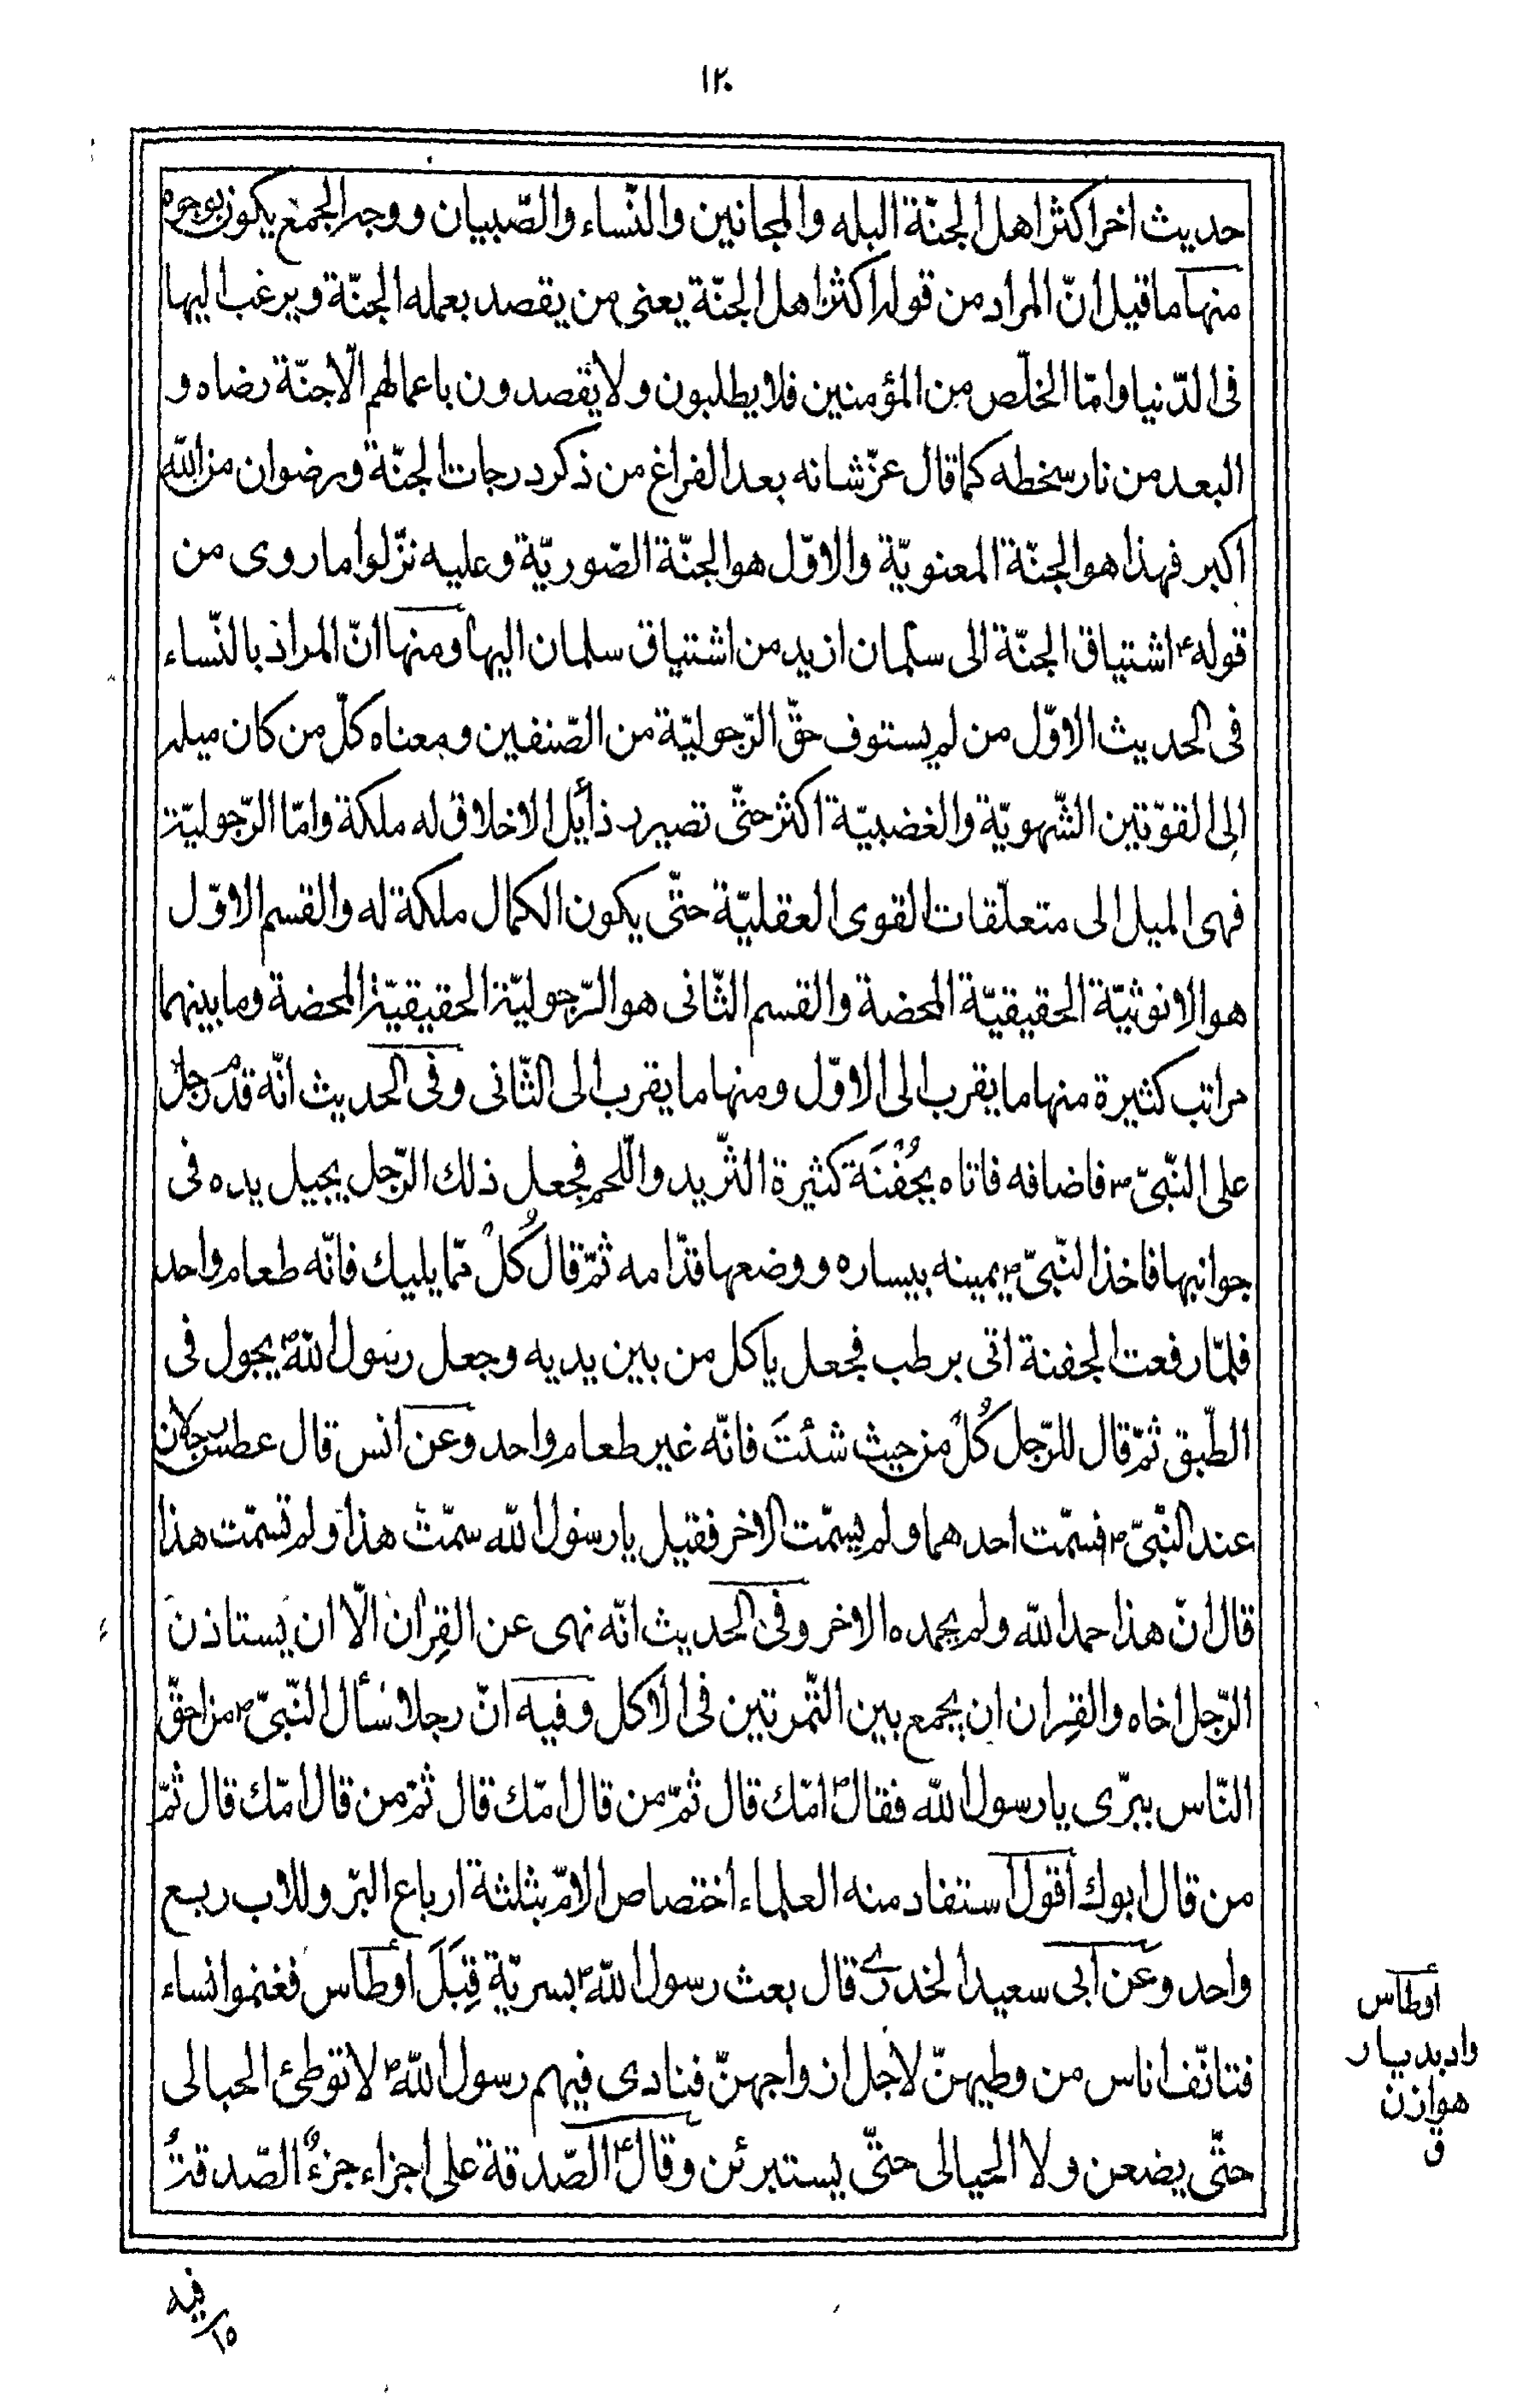 ١٢٠
حديث اخر اكثر اهل الجنّة البله والمجانين والنّساء والصّبيان ووجه الجمع يكون بوجوه
منها ما قيل انّ المراد من قوله اكثر اهل الجنّة يعنى من يقصد بعمله الجنّة ويرغب اليها
فى الدّنيا وامّا الخلّص من المؤمنين فلا يطلبون ولا يقصدون باعمالهم الّا جنّة رضاه و
البعد من نار سخطه كما قال عزّ شانه بعد الفراغ من ذكر درجات الجنّة ورضوان من الله
اكبر فهذا هو الجنّة المعنويّة والاوّل هو الجنّة الصّوريّة وعليه نزّلوا ما روى من
قوله ع اشتياق الجنّة الى سلمان ازيد من اشتياق سلمان اليها ومنها انّ المراد بالنّساء
فى الحديث الاوّل من لم يستوف حقّ الرّجوليّة من الصّنفين ومعناه كلّ من كان ميله
الى القوّتين الشّهويّة والغضبيّة اكثر حتّى تصير رذأيل الاخلاق له ملكة وامّا الرّجوليّة
فهى الميل الى متعلّقات القوى العقليّة حتّى يكون الكمال ملكة له والقسم الاوّل
هو الانوثيّة الحقيقيّة المحضة والقسم الثّانى هو الرّجوليّة الحقيقيّة المحضة وما بينهما
مراتب كثيرة منها ما يقرب الى الاوّل ومنها ما يقرب الى الثّانى وفى الحديث انّه قدم رجل
على النّبىّ ص فاضافه فاتاه بجُفْنَة كثيرة الثّريد واللّحم فجعل ذلك الرّجل يجيل يده فى
جوانبها فاخذ النّبىّ ص يمينه بيساره ووضعها قدّامه ثمّ قال كُلْ ممّا يليك فانّه طعام واحد
فلمّا رفعت الجفنة اتى برطب فجعل ياكل من بين يديه وجعل رسول الله ص يجول فى
الطّبق ثمّ قال للرّجل كُلْ من حيث شئتَ فانّه غير طعام واحد وعن انس قال عطس رجلان
عند النّبىّ ص فسمّت احدهما ولم يسمّت الاخر فقيل يا رسول الله سمّتَ هذا ولم تسمّت هذا
قال انّ هذا حمد الله ولم يحمده الاخر وفى الحديث انّه نهى عن القِران الّا ان يستاذن
الرّجل اخاه والقِران ان يجمع بين التّمرتين فى الاكل وفيه انّ رجلا سأل النّبىّ ص من احقّ
النّاس ببرّى يا رسول الله فقال ص امّك قال ثمّ من قال امّك قال ثمّ من قال امّك قال ثمّ
من قال ابوك اقول استفاد منه العلماء اختصاص الامّ بثلثة ارباع البرّ وللاب ربع
واحد وعن أبى سعيد الخدرى قال بعث رسول الله ص بسريّة قِبَلَ أوطاس فغنموا نساء
فتانّف اناس من وطيهنّ لاجل ازواجهنّ فنادى فيهم رسول الله ص لا توطئ الحبالى
حتّى يضعن ولا الحيالى حتّى يستبرئن وقال ع الصّدقة على اجزاء جزءٌ الصّدقةُ
أوطاس
واد بديار
هوازن
ق
فيه
١٥